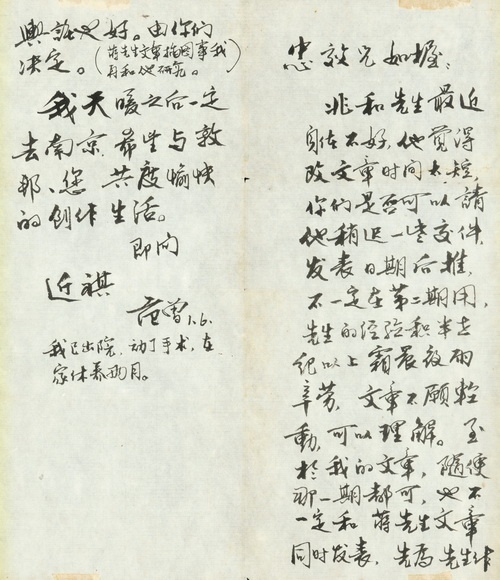 忠敏兄如握：
兆和先生最近
身体不好，他觉得
改文章时间太短，
你们是否可以請
他稍迟一些交件，
发表日期后推，
不一定在第二期用，
先生的经验积半世
纪以上霜晨夜雨
辛劳，文章不願輕
動，可以理解。至
於我的文章，隨便
那一期都可，也不
一定和蒋先生文章
同时发表，先為先生作
興許也好。由你们
决定。（蒋先生文章插图事我
自和他研究。）
我天暖之后一定
去南京，希望与敦
邦、您共度愉快
的创作生活。
即问
近祺
范曾 1.6.
我已出院，动了手术，在
家休养两月。